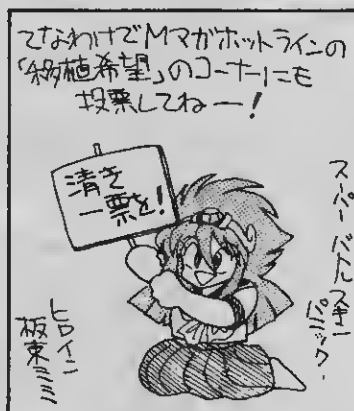 てなわけでMマガホットラインの
「移植希望」のコーナーにも
投票してねー！
清き
一票を！
スーパーバトルスキン
パニック・
ヒロイン
板東ミミ